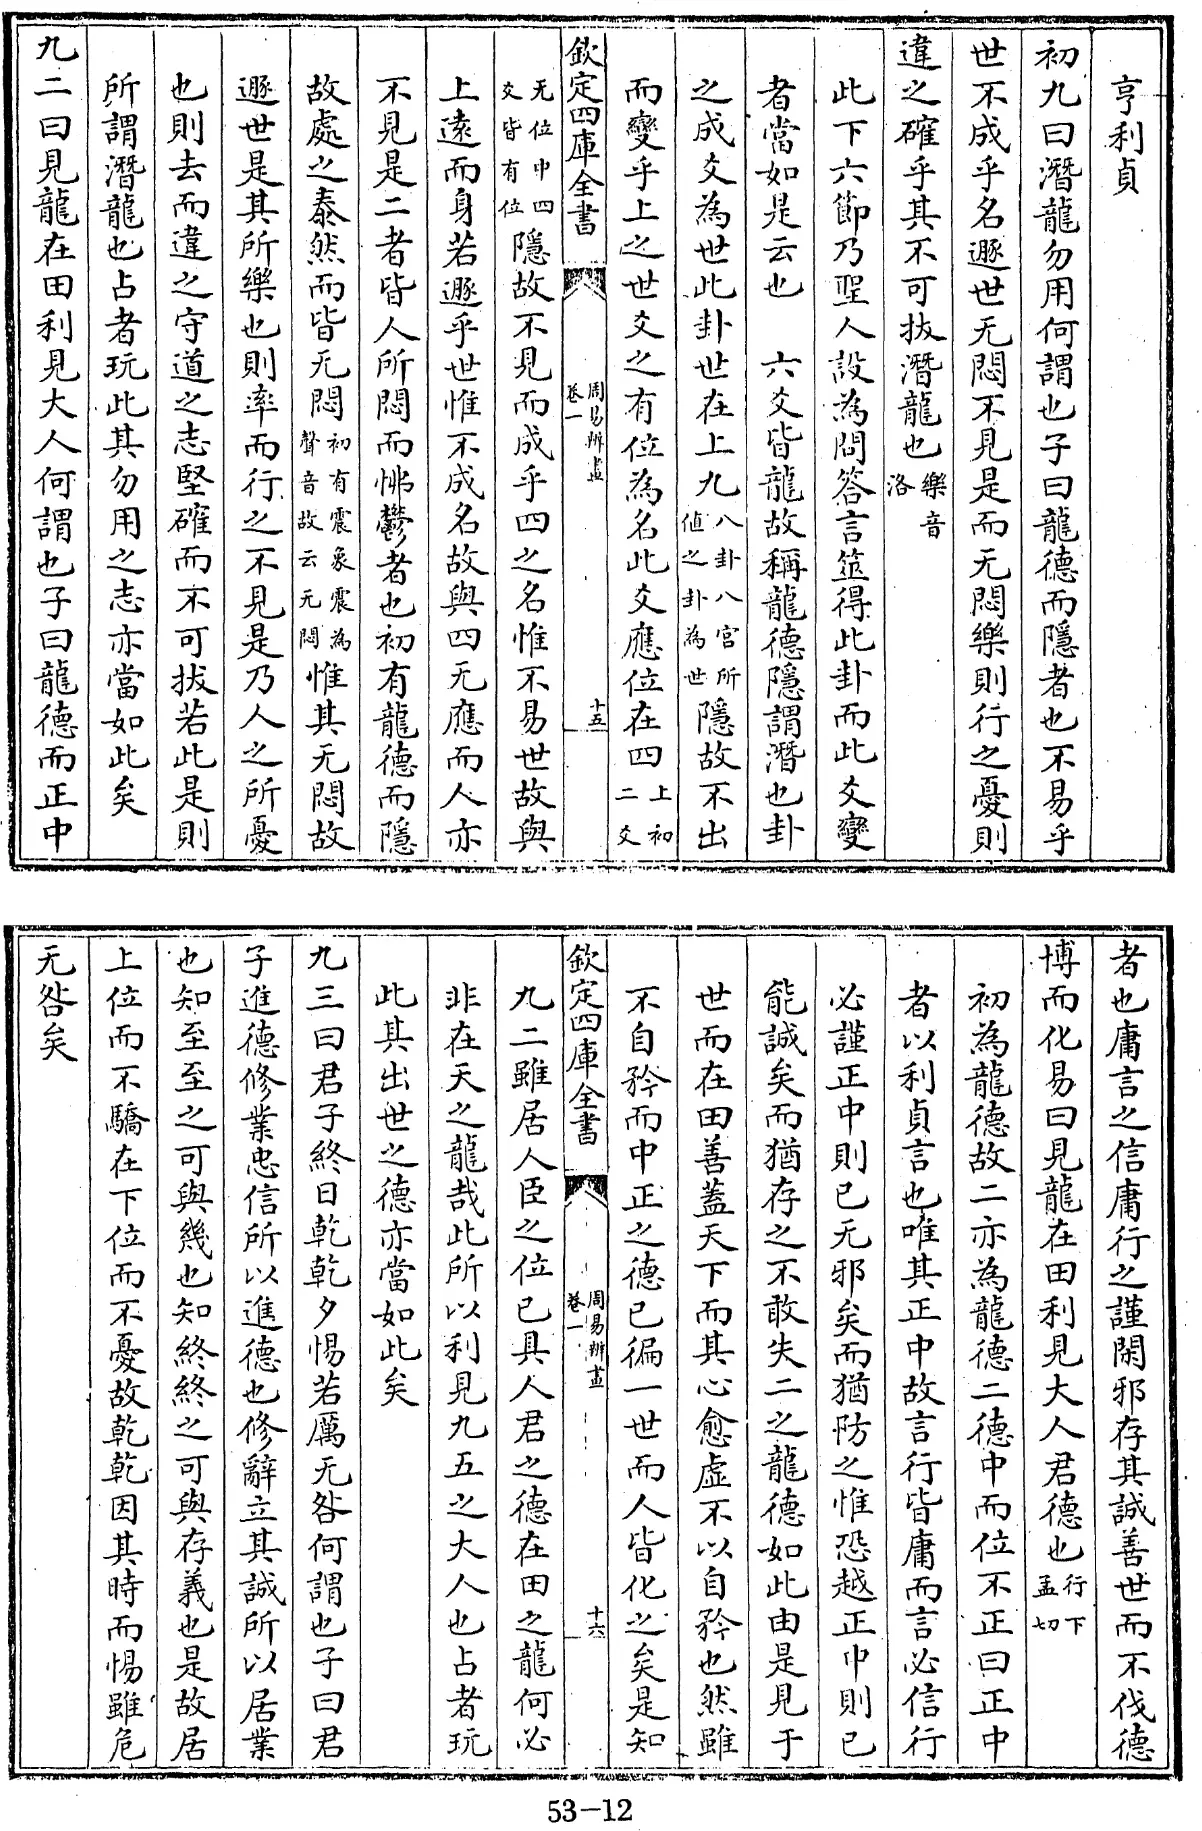 亨利貞
初九曰潛龍勿用何謂也子曰龍德而隱者也不易乎
世不成乎名遯世无悶不見是而无悶樂則行之憂則
違之確乎其不可拔潛龍也樂音洛
此下六節乃聖人設為問答言筮得此卦而此爻變
者當如是云也　六爻皆龍故稱龍德隱謂潛也卦
之成爻為世此卦世在上九八卦八宮所值之卦為世隱故不出
而變乎上之世爻之有位為名此爻應位在四上初二爻
欽定四庫全書
周易辨畫
卷一
十五
无位中四爻皆有位隱故不見而成乎四之名惟不易世故與
上遠而身若遯乎世惟不成名故與四无應而人亦
不見是二者皆人所悶而怫鬱者也初有龍德而隱
故處之泰然而皆无悶初有震象震為聲音故云无悶惟其无悶故
遯世是其所樂也則率而行之不見是乃人之所憂
也則去而違之守道之志堅確而不可拔若此是則
所謂潛龍也占者玩此其勿用之志亦當如此矣
九二曰見龍在田利見大人何謂也子曰龍德而正中
者也庸言之信庸行之謹閑邪存其誠善世而不伐德
博而化易曰見龍在田利見大人君德也行下孟切
初為龍德故二亦為龍德二德中而位不正曰正中
者以利貞言也唯其正中故言行皆庸而言必信行
必謹正中則已无邪矣而猶防之惟恐越正中則已
能誠矣而猶存之不敢失二之龍德如此由是見于
世而在田善蓋天下而其心愈虛不以自矜也然雖
不自矜而中正之德已徧一世而人皆化之矣是知
欽定四庫全書
周易辨畫
卷一
十六
九二雖居人臣之位已具人君之德在田之龍何必
非在天之龍哉此所以利見九五之大人也占者玩
此其出世之德亦當如此矣
九三曰君子終日乾乾夕惕若厲无咎何謂也子曰君
子進德修業忠信所以進德也修辭立其誠所以居業
也知至至之可與幾也知終終之可與存義也是故居
上位而不驕在下位而不憂故乾乾因其時而惕雖危
无咎矣
53-12